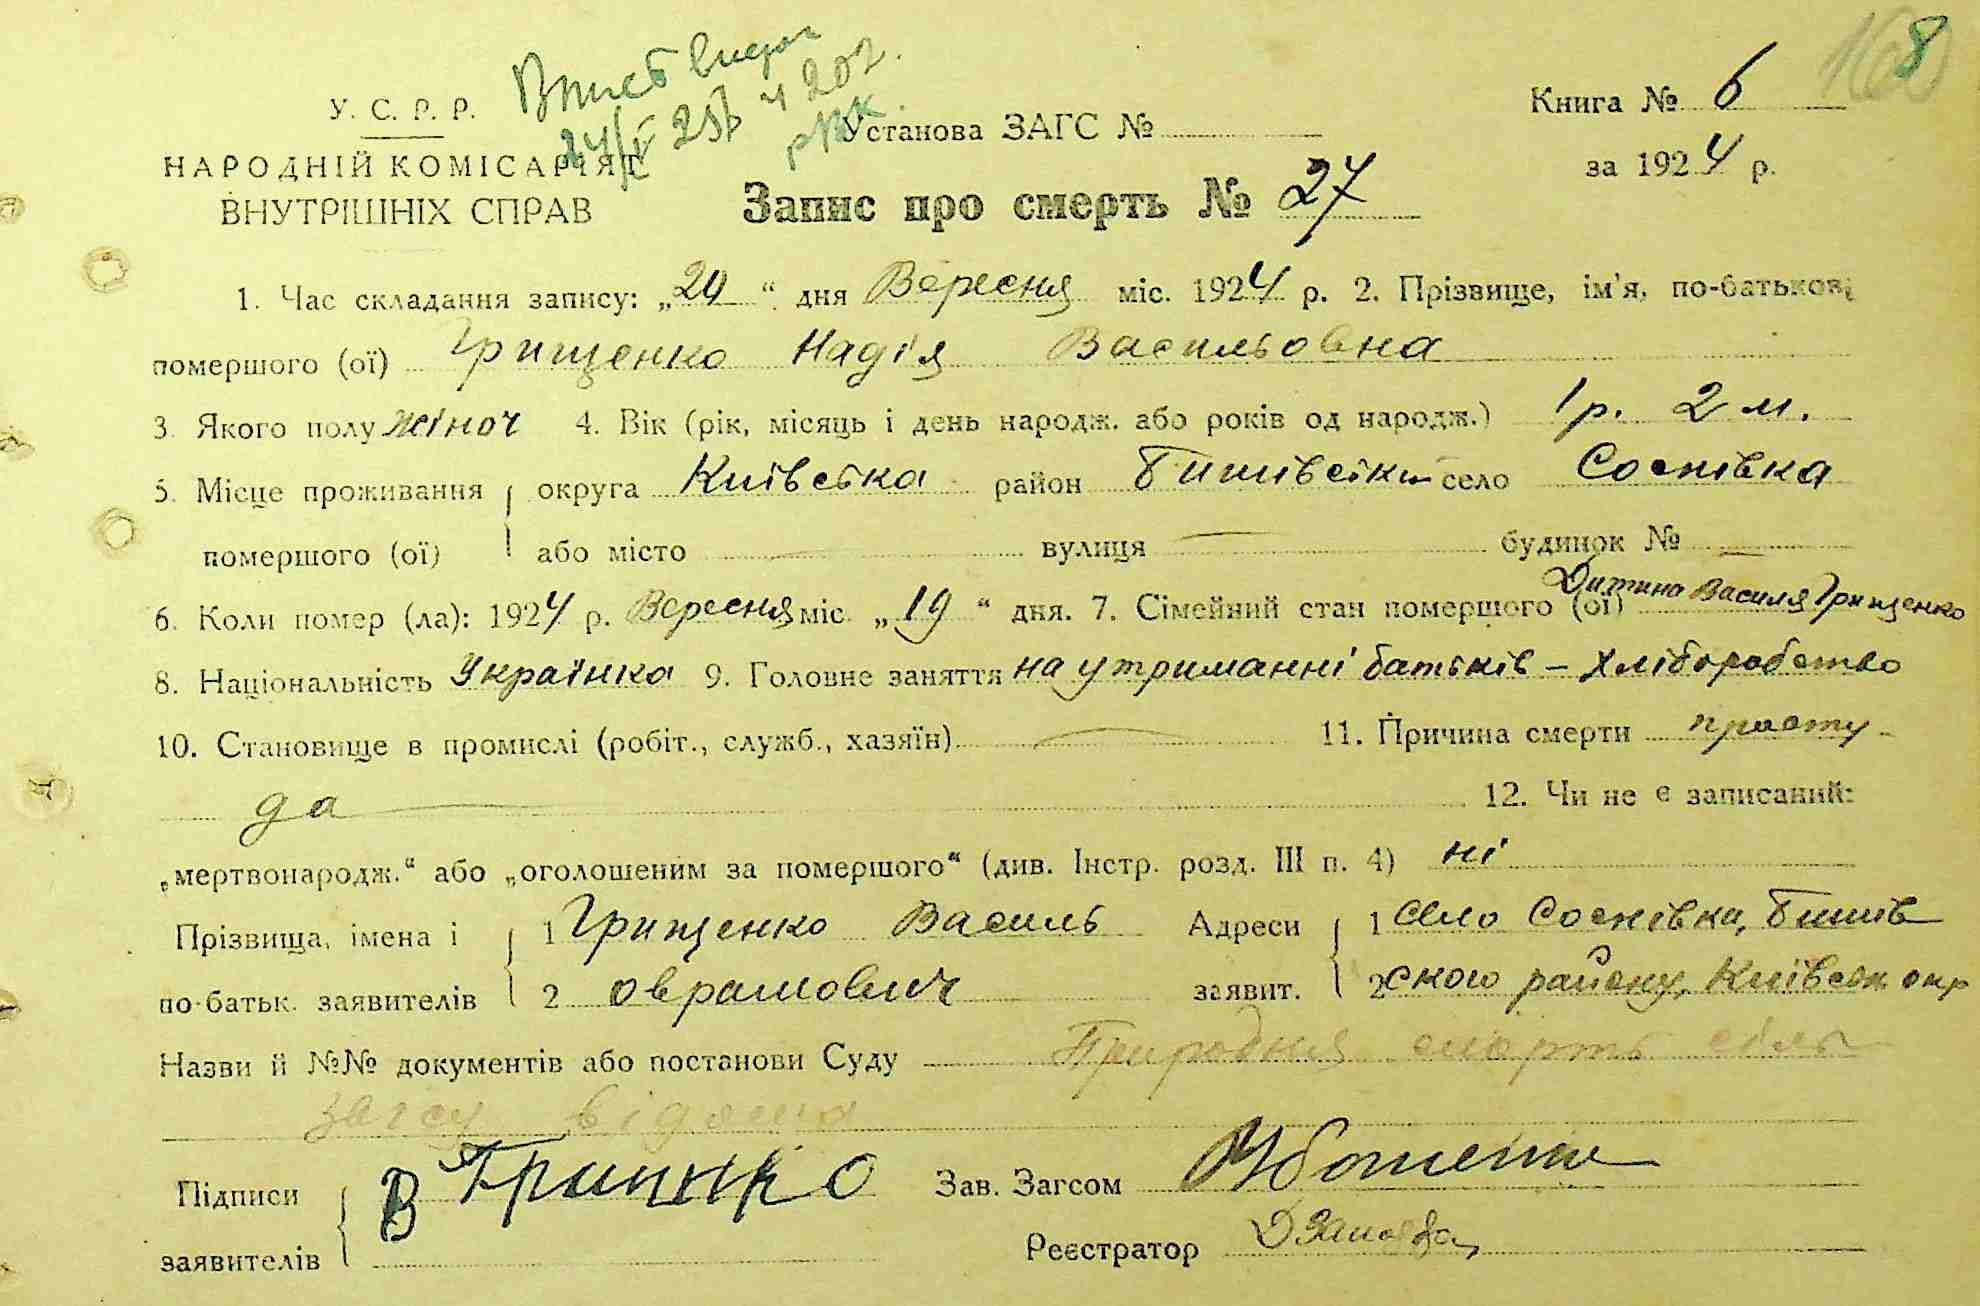 8
Книга № 6
У. С. Р. Р.
Установа ЗАГС №
за 1924 р.
НАРОДНІЙ КОМІСАРІЯТ
ВНУТРІШНІХ СПРАВ
Запис про смерть № 27
1. Час складання запису: „20“ дня Вересня міс. 1924 р. 2. Прізвище, ім'я, по-батькові
помершого (ої) Грищенко Надія Васильовна
3. Якого полу жіноч 4. Вік (рік, місяць і день народж. або років од народж.) 1 р. 2 м.
5. Місце проживання округа Київська район Бишівський село Соснівка
помершого (ої) або місто — вулиця — будинок № —
6. Коли помер (ла): 1924 р. Вересня міс. „19“ дня. 7. Сімейний стан помершого (ої) Дитина Василя Грищенко
8. Національність Українка 9. Головне заняття на утриманні батьків – хліборобство
10. Становище в промислі (робіт., служб., хазяїн) — 11. Причина смерти просту-
да 12. Чи не є записаний:
„мертвонародж.“ або „оголошеним за помершого“ (див. Інстр. розд. III п. 4) ні
Прізвища, імена і 1 Грищенко Василь Адреси 1 село Соснівка, Бишів
по-батьк. заявителів 2 Оврамович заявит. 2 ського району, Київськ окр
Назви й №№ документів або постанови Суду Природня смерть
загсу відома
Підписи В Грищенко Зав. Загсом
заявителів Реєстратор